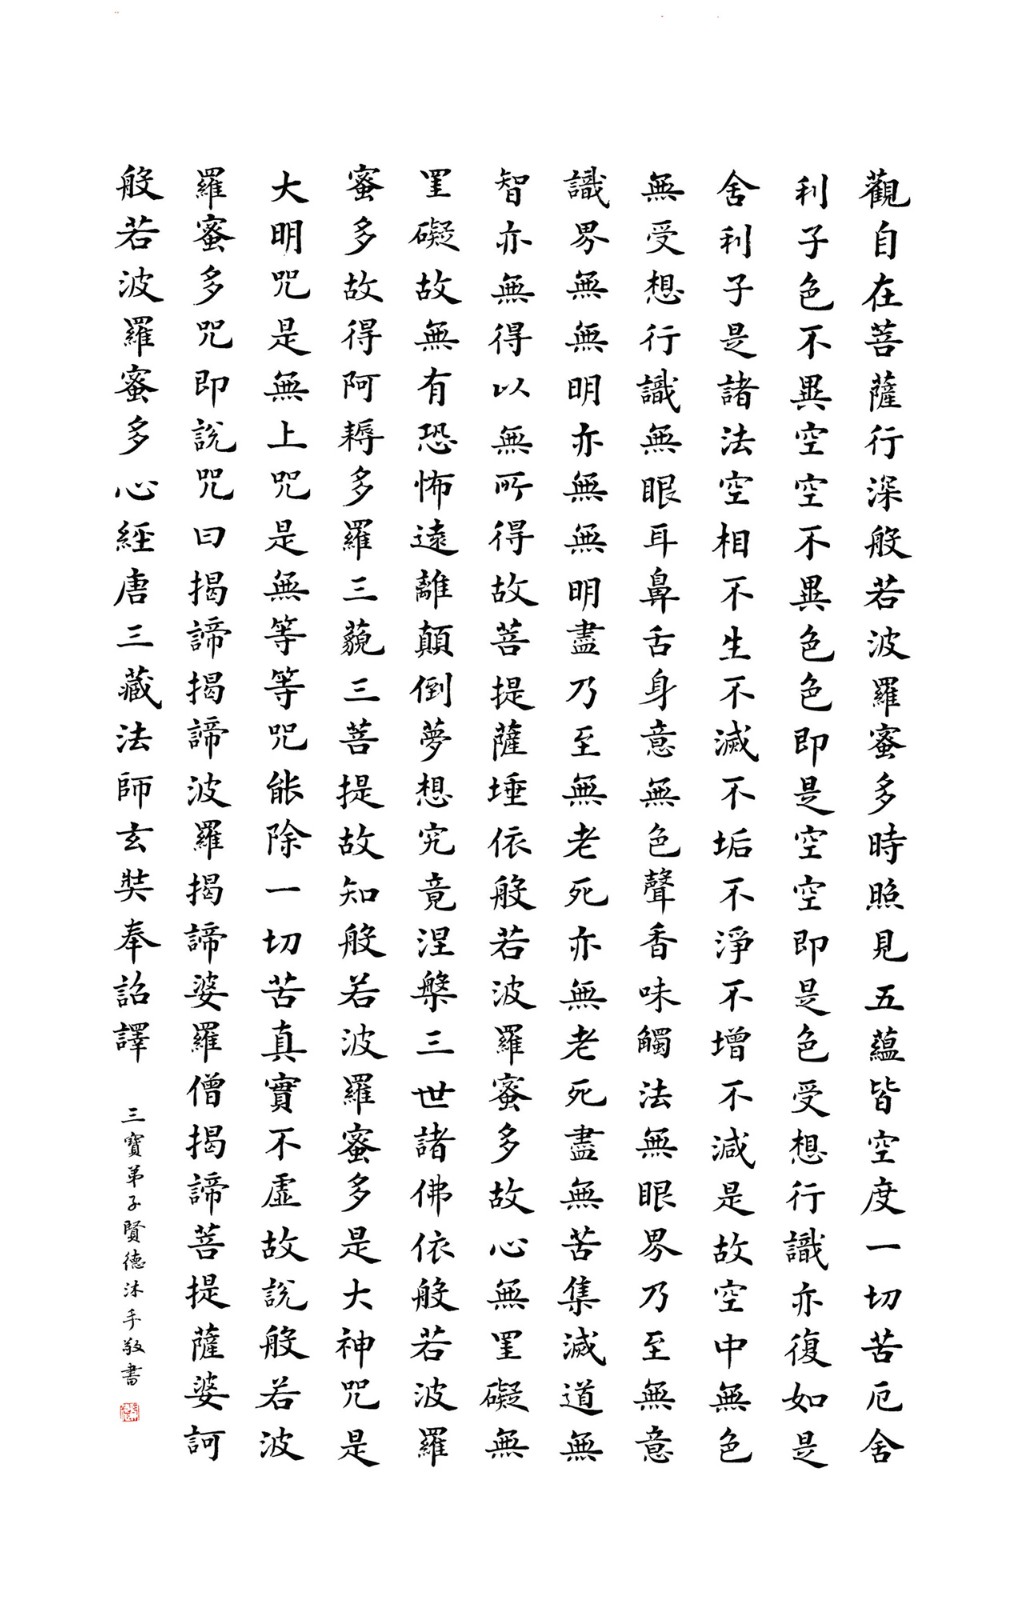 觀自在菩薩行深般若波羅蜜多時照見五蘊皆空度一切苦厄舍
利子色不異空空不異色色即是空空即是色受想行識亦復如是
舍利子是諸法空相不生不滅不垢不淨不增不減是故空中無色
無受想行識無眼耳鼻舌身意無色聲香味觸法無眼界乃至無意
識界無無明亦無無明盡乃至無老死亦無老死盡無苦集滅道無
智亦無得以無所得故菩提薩埵依般若波羅蜜多故心無罣礙無
罣礙故無有恐怖遠離顛倒夢想究竟涅槃三世諸佛依般若波羅
蜜多故得阿耨多羅三藐三菩提故知般若波羅蜜多是大神咒是
大明咒是無上咒是無等等咒能除一切苦真實不虛故說般若波
羅蜜多咒即說咒曰揭諦揭諦波羅揭諦婆羅僧揭諦菩提薩婆訶
般若波羅蜜多心經唐三藏法師玄奘奉詔譯
三寶弟子賢德沐手敬書